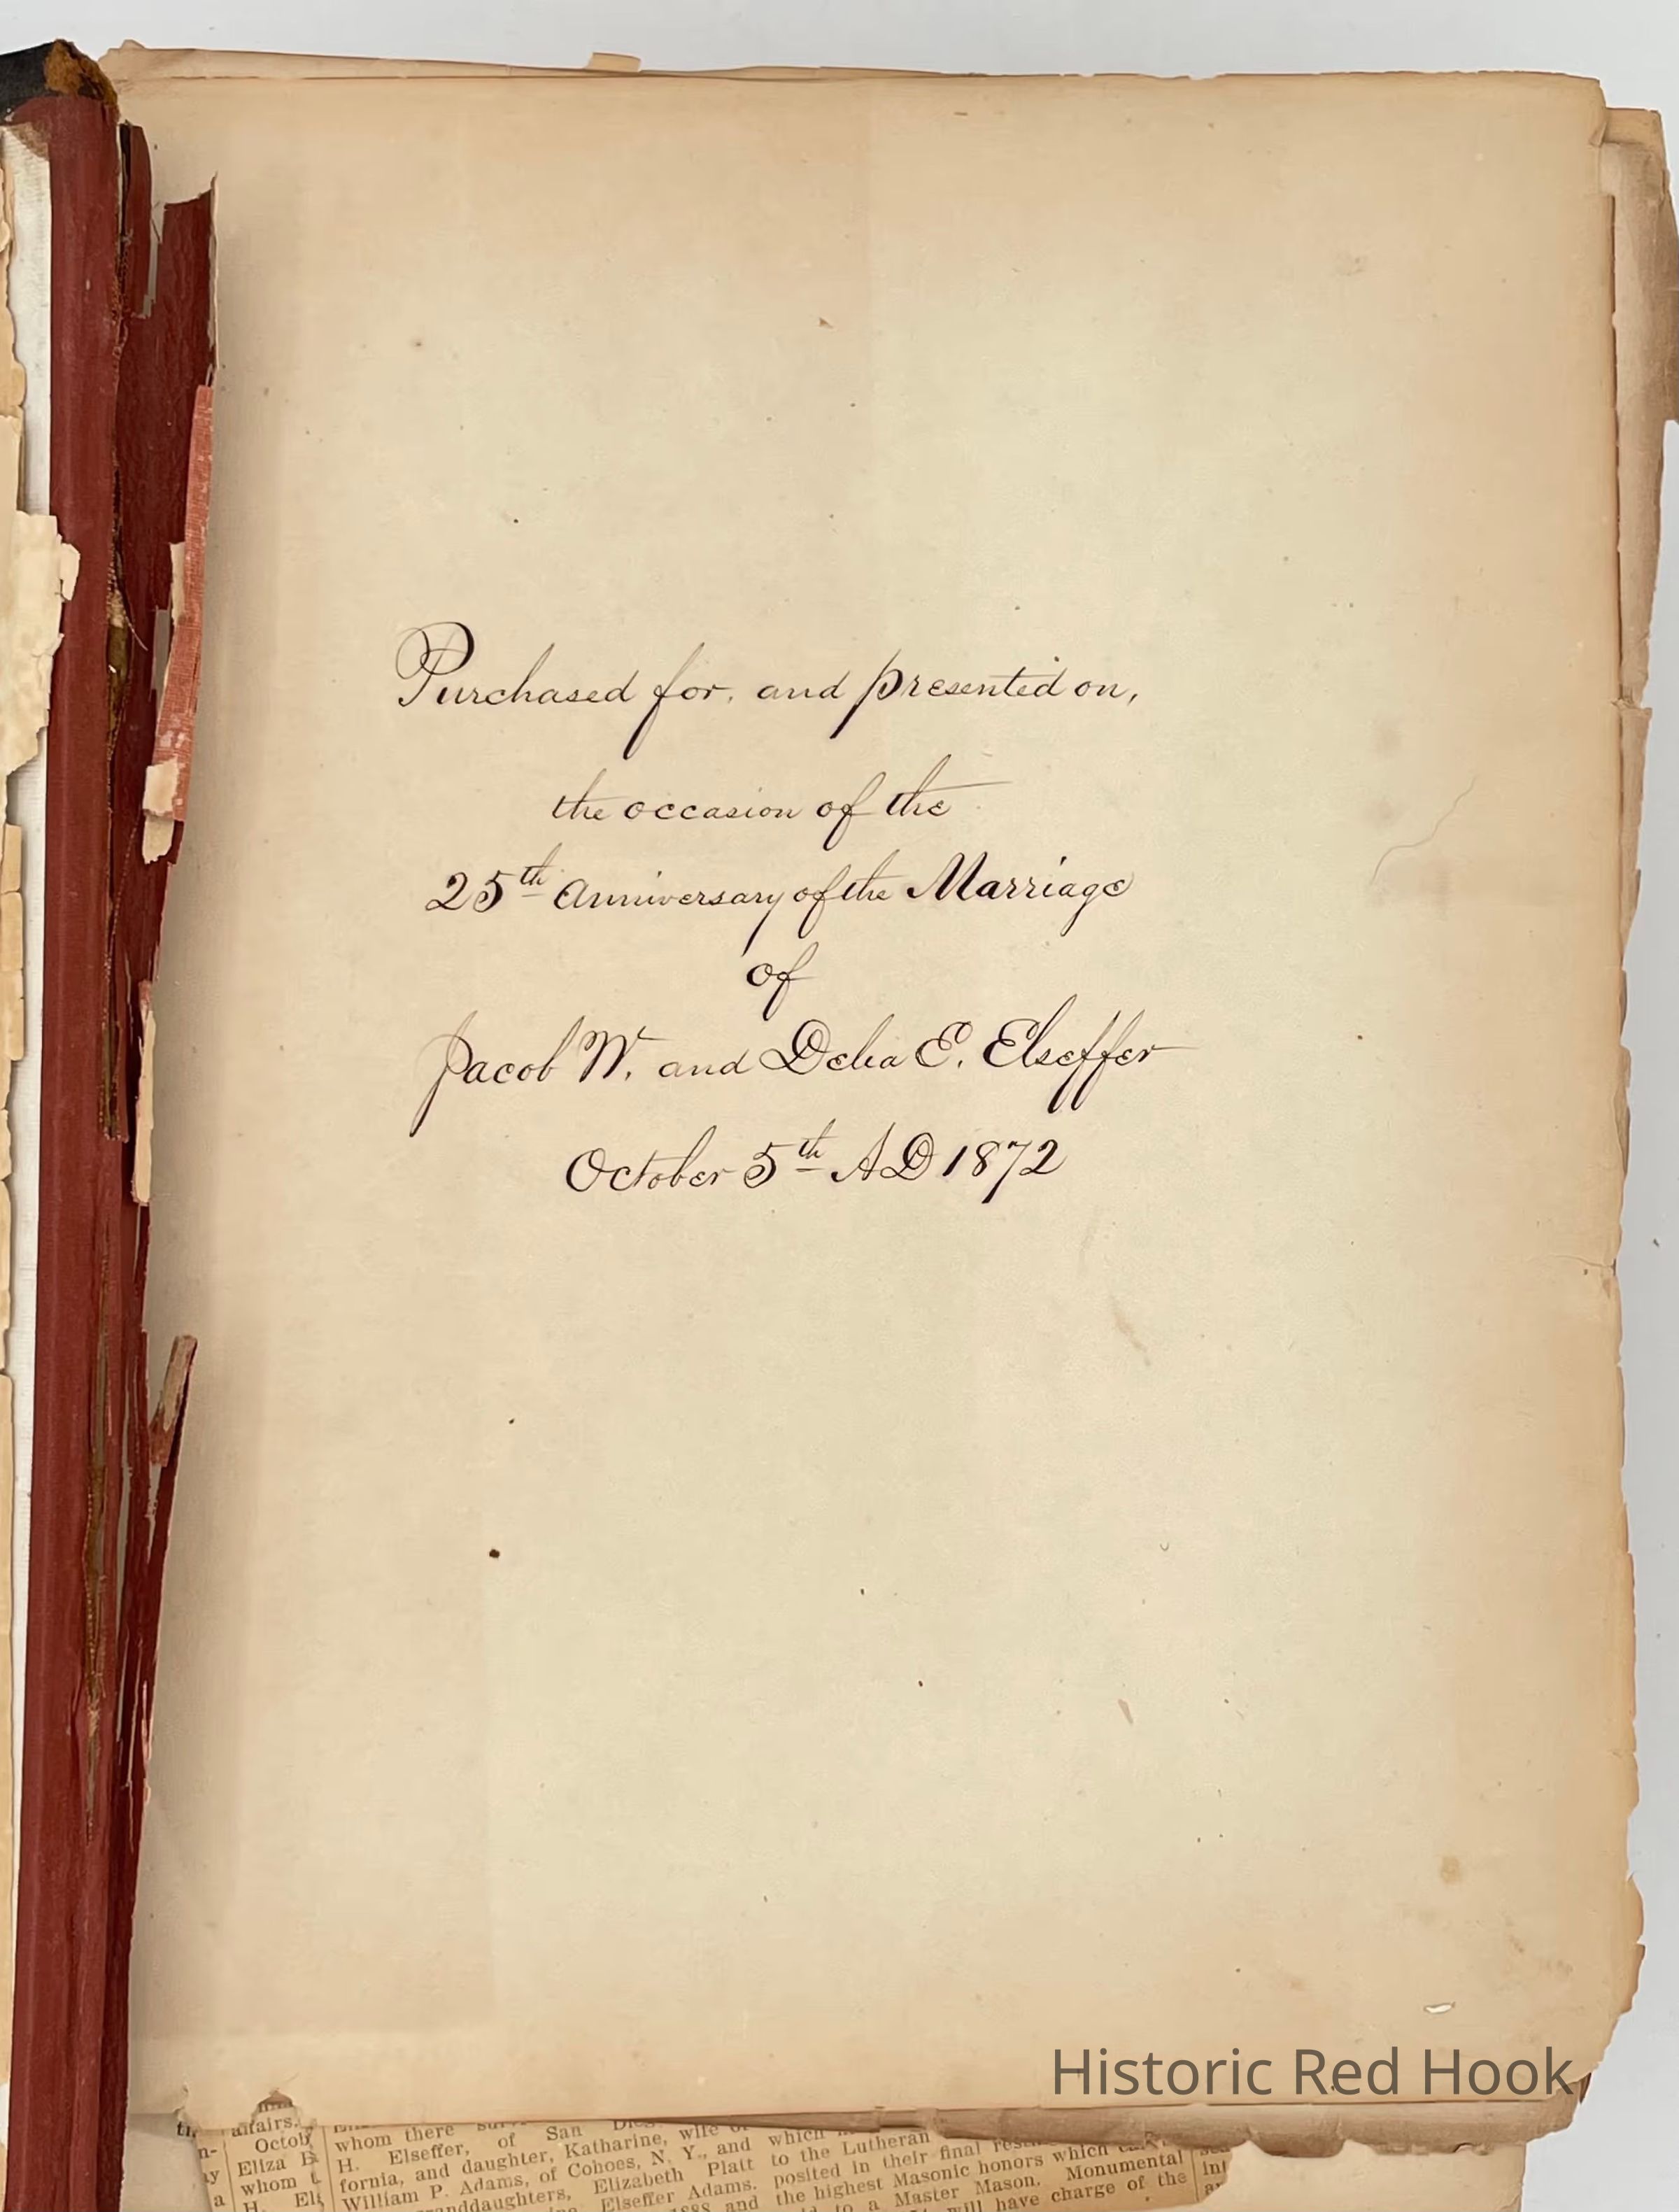 Purchased for, and presented on,
the occasion of the
25th Anniversary of the Marriage
of
Jacob W. and Delia E. Elseffer
October 5th AD 1872
Historic Red Hook
affairs.
Octob
Eliza
whom
H. Els
whom there
H. Elseffer, of San
fornia, and daughter, Katharine, wife of
William P. Adams, of Cohoes, N. Y., and
granddaughters, Elizabeth Platt
Elseffer Adams.
1888 and
which
to the Lutheran
posited in their final
the highest Masonic honors which
to a Master Mason. Monumental
will have charge of the